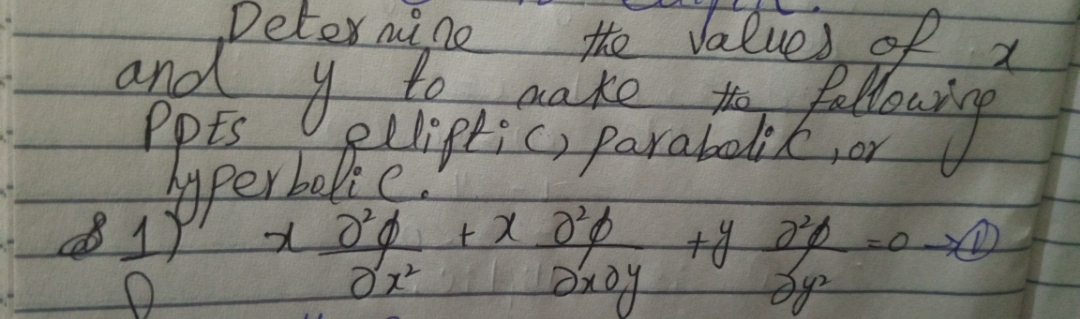 Determine the values of x
and y to make the following
PDEs elliptic, parabolic, or
hyperbolic.
1) x ∂²φ/∂x² + x ∂²φ/∂x∂y + y ∂²φ/∂y² = 0 → ①